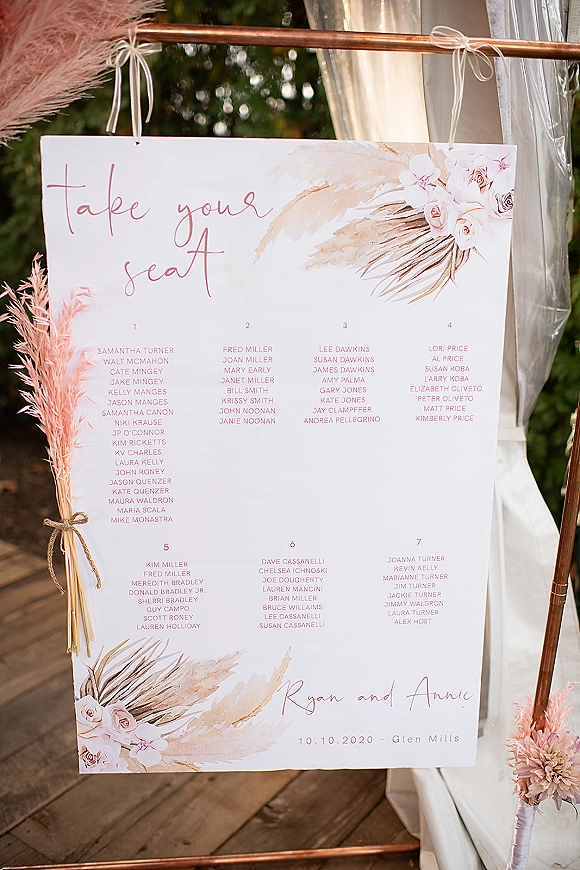 take your
seat
1
SAMANTHA TURNER
WALT MCMAHON
CATE MINGEY
JAKE MINGEY
KELLY MANGES
JASON MANGES
SAMANTHA CANON
NIKI KRAUSE
JP O'CONNOR
KIM RICKETTS
KV CHARLES
LAURA KELLY
JOHN RONEY
JASON QUENZER
KATE QUENZER
MAURA WALDRON
MARIA SCALA
MIKE MONASTRA
2
FRED MILLER
JOAN MILLER
MARY EARLY
JANET MILLER
BILL SMITH
KRISSY SMITH
JOHN NOONAN
JANIE NOONAN
3
LEE DAWKINS
SUSAN DAWKINS
JAMES DAWKINS
AMY PALMA
GARY JONES
KATE JONES
JAY CLAMPFFER
ANDREA PELLEGRINO
4
LORI PRICE
AL PRICE
SUSAN KOBA
LARRY KOBA
ELIZABETH OLIVETO
PETER OLIVETO
MATT PRICE
KIMBERLY PRICE
5
KIM MILLER
FRED MILLER
MEREDITH BRADLEY
DONALD BRADLEY JR.
SHERRI BRADLEY
GUY CAMPO
SCOTT RONEY
LAUREN HOLLIDAY
6
DAVE CASSANELLI
CHELSEA ICHNOSKI
JOE DOUGHERTY
LAUREN MANCINI
BRIAN MILLER
BRUCE WILLAIMS
LEE CASSANELLI
SUSAN CASSANELLI
7
JOANNA TURNER
KEVIN KELLY
MARIANNE TURNER
JIM TURNER
JACKIE TURNER
JIMMY WALDRON
LAURA TURNER
ALEX HOST
Ryan and Annie
10.10.2020 - Glen Mills